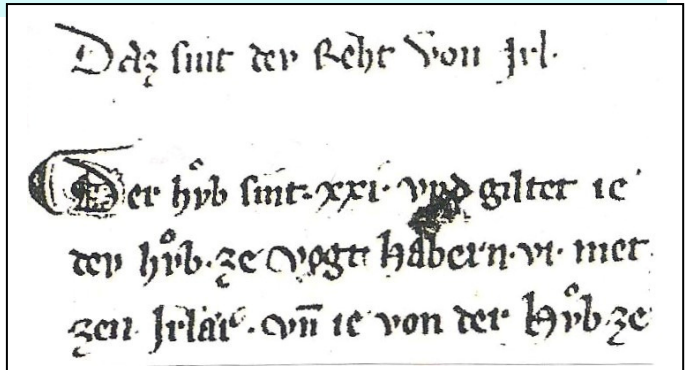 Daz sint dev Reht von Jrl·
Der hvͦb sint·xxi· vnd giltet ie
dev hvͦb·ze vogtt habern·vi· met
zen Jrlar·vn̄ ie von der hvͦb·ze